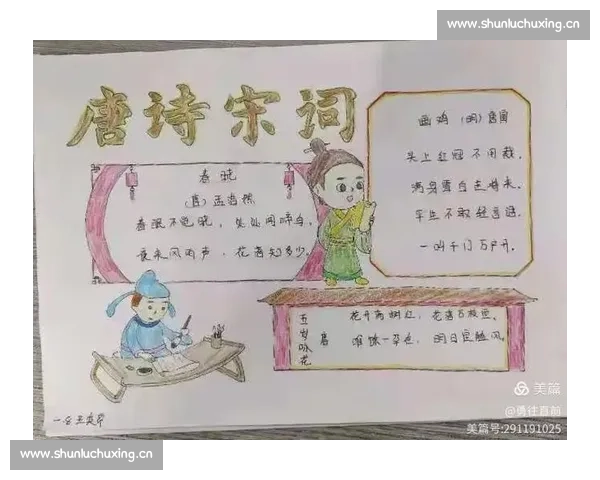 www.shunluchuxing.cn
唐诗宋词
春晓
(唐) 孟浩然
春眠不觉晓，处处闻啼鸟。
夜来风雨声，花落知多少。
画鸡 (明) 唐寅
头上红冠不用裁，
满身雪白走将来。
平生不敢轻言语，
一叫千门万户开。
五岁咏花
花开 树红，花落万枝空。
唯馀一朵在，明日定随风。
美篇
@勇往直前
美篇号:291191025
www.shunluchuxing.cn